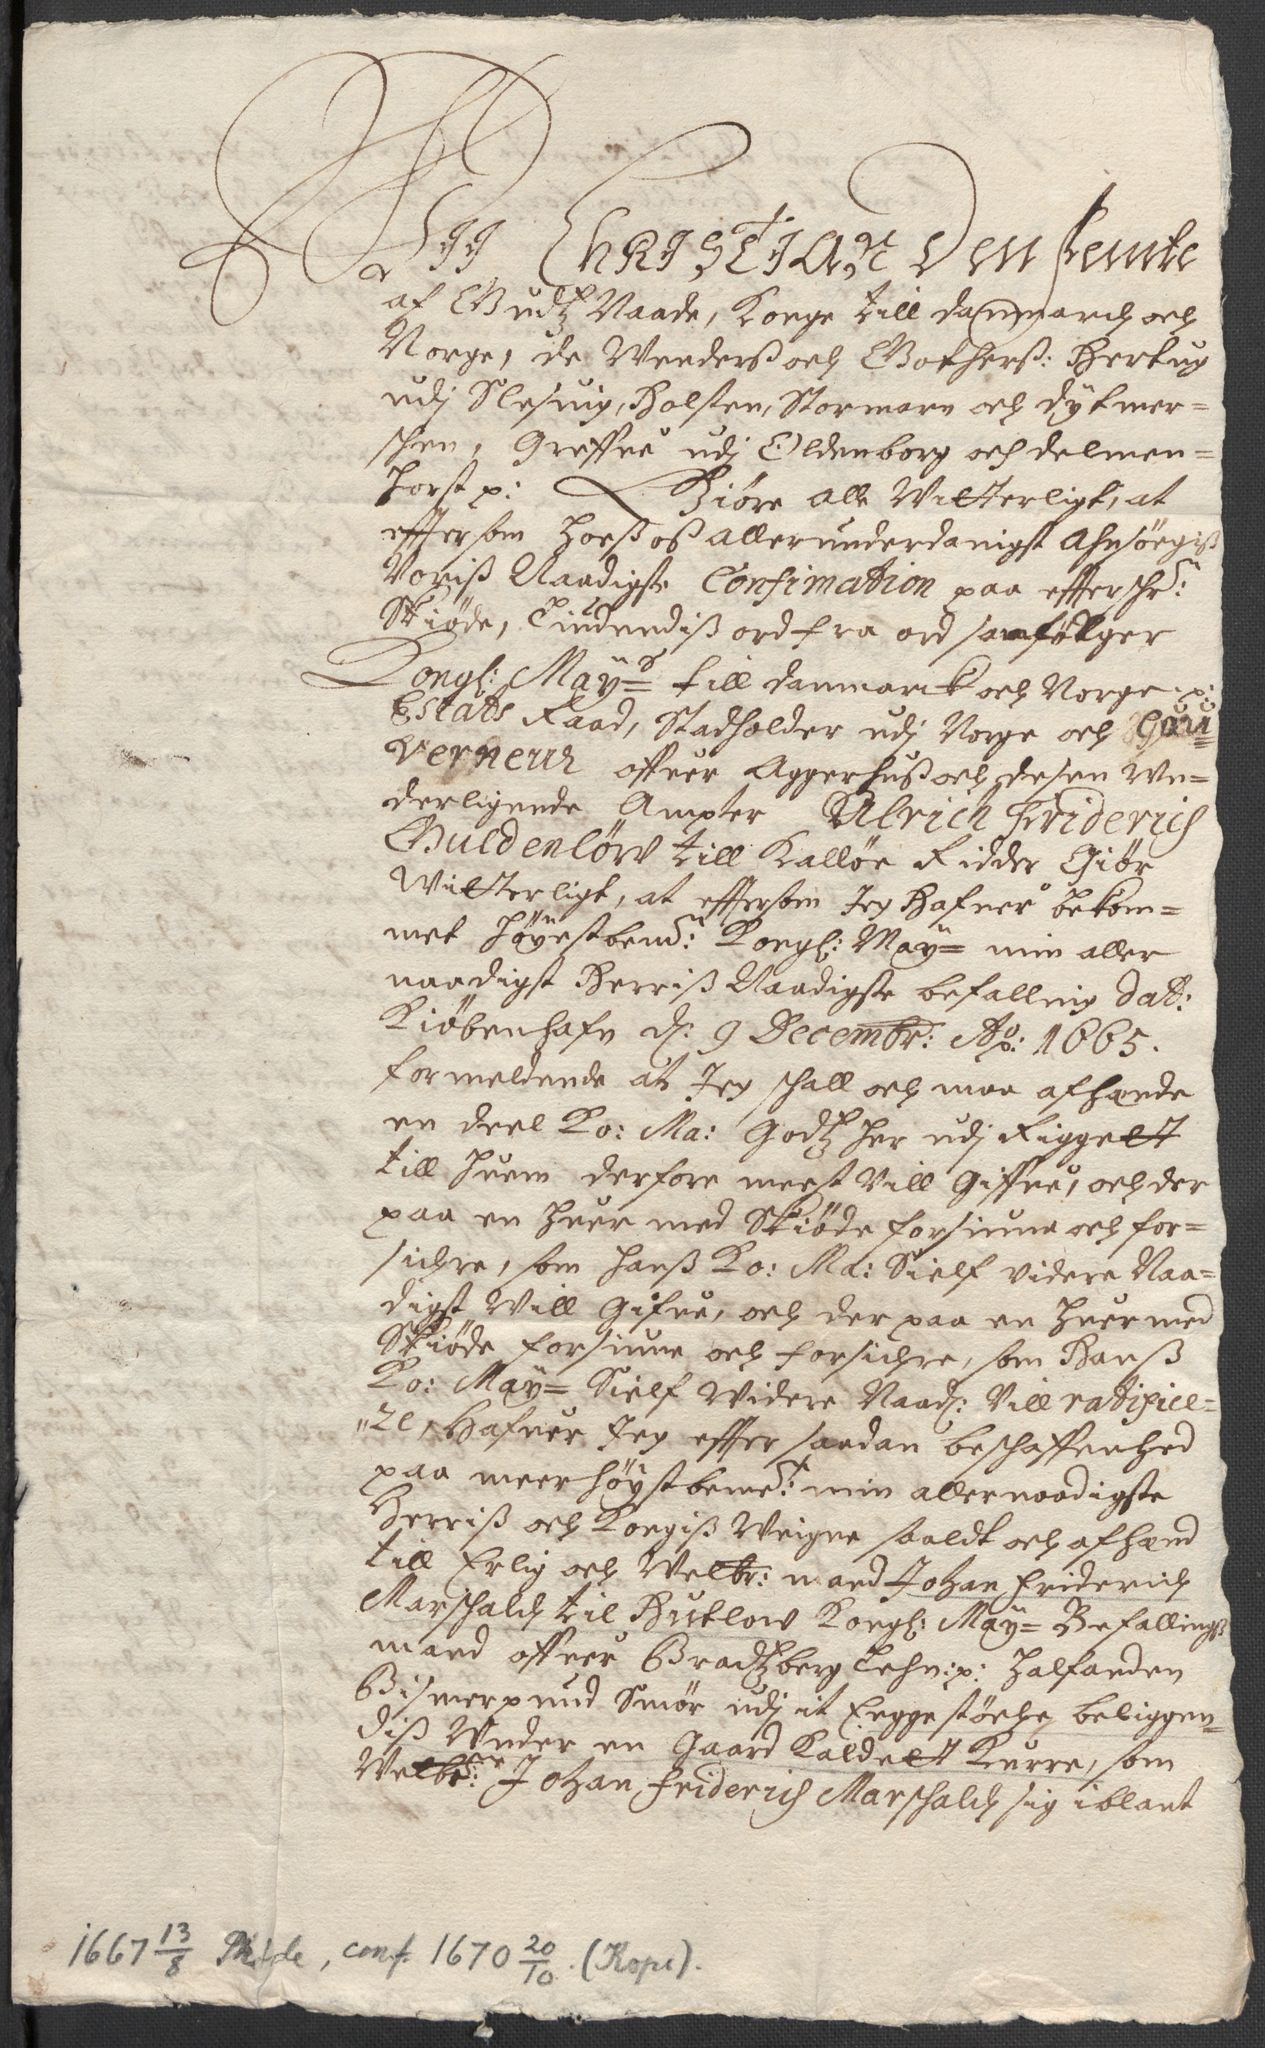 Wij Christian den femte
af Gudtz Naade, Konge till danmarch och
Norge, de Wenders och Gothers: Hertug
udj Slesuig, Holsten, Stormarn och dytmer=
schen, Greffue udj Oldenborg och delmen=
horst p: Giöre alle Witterligt, at
efftersom hoes os allerunderdanigst Ahnsöegis
Voris Naadigste Confirmation paa effterschr:
Skiöde, Liudendis ord fra ord som fölger
Kongl: Mayts till danmarck och Norge p:
Estats Raad, Stadholder udj Norge och Gou=
verneur offuer Aggershus och desen Un=
derligende Ampter Ulrich Friderich
Guldenlöw till Kallöe Ridder Giör
Witterligt, at effersom Jeg Hafuer bekom=
met höyestbemt: Kongl: May= min aller
naadigst Herris Naadigste befalling dat:
Kiöbenhafn d: 9 Decembr: Ao: 1665.
formeldende at Jeg schall och maa afhænde
en deel Ko: Ma: Godtz her udj Riggett
till huem derfore meest Vill Giffue, och der
paa en huer med Skiöde forsiune och for=
sichre, som hans Ko: Ma: Sielf videre Naa=
digst Will Gifue, och der paa en huer med
Skiöde forsiune och forsichre, som Hans
Ko: May= Sielf Widere Naad: Vill ratificee=
re, Hafuer Jeg effter saadan beschaffenhed
paa meer höystbemt: min allernaadigste
Herris och Kongis Weigne saaldt och afhænd
till Erlig och Welbr: mand Johan Friderich
Marschalch til Hutlow Kongl: May= Befallings
mand offuer Bradtzberg Lehn: p: halfanden
Bismerpund Smör udj it Eggestöche beliggen=
dis Under en Gaard Kaldett Kurre, som
Welbr: Johan Friderich Marschalch sig iblant
1667 13/8 Skjøde, conf. 1670 20/10. (Kopi).